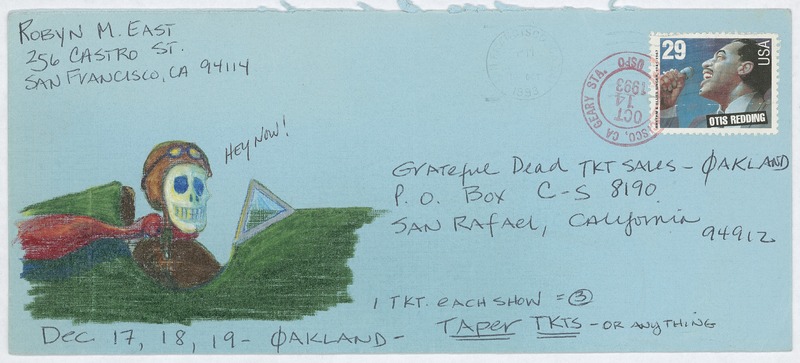 ROBYN M. EAST
256 CASTRO ST.
SAN FRANCISCO, CA 94114
HEY NOW!
29
USA
OTIS REDDING
SCO, CA GEARY STA.
USPO
OCT
14
1993
GRATEFUL Dead TKT SALES - OAKLAND
P. O. Box C-S 8190
SAN RAFAEL, CALIFORNIA
94912
1 TKT. EACH SHOW = 3
TAPER TKTS - OR ANYTHING
Dec 17, 18, 19 - OAKLAND -